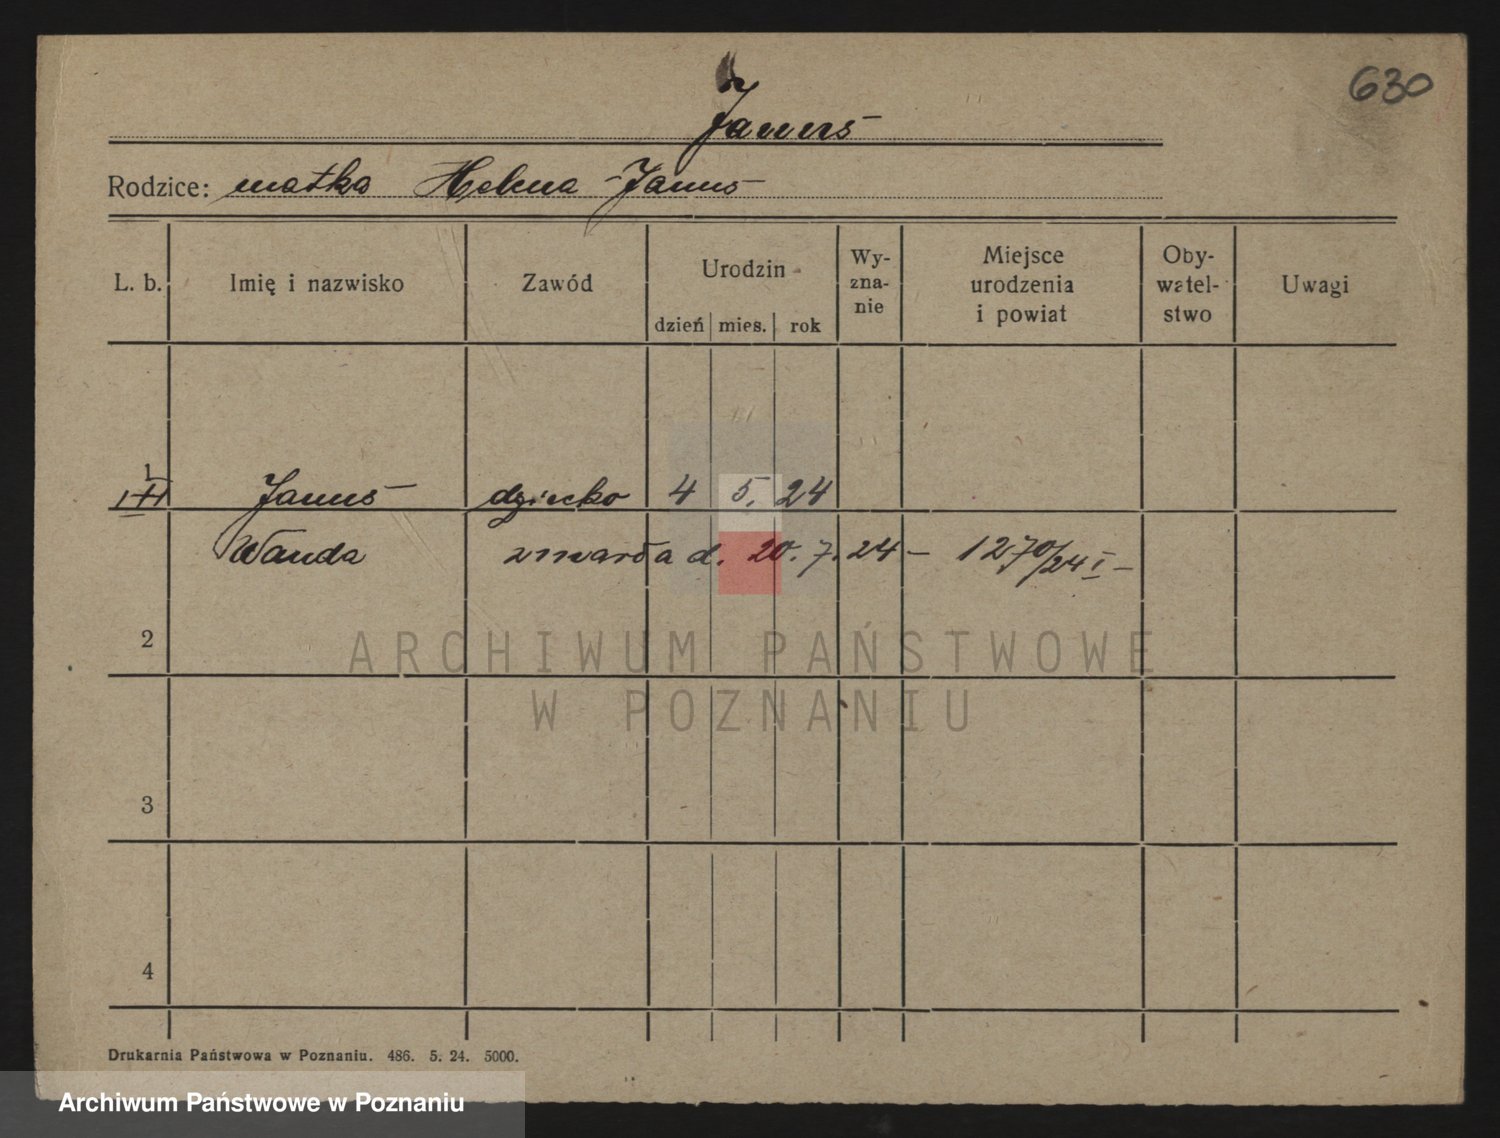 630
Janus
Rodzice: matka Helena Janus
L. b. Imię i nazwisko Zawód Urodzin dzień mies. rok Wy-zna-nie Miejsce urodzenia i powiat Oby-watel-stwo Uwagi
1 Janus dziecko 4 5. 24
Wanda zmarła d. 20. 7. 24 – 1270/24 I –
2
3
4
Drukarnia Państwowa w Poznaniu. 486. 5. 24. 5000.
ARCHIWUM PAŃSTWOWE
W POZNANIU
Archiwum Państwowe w Poznaniu